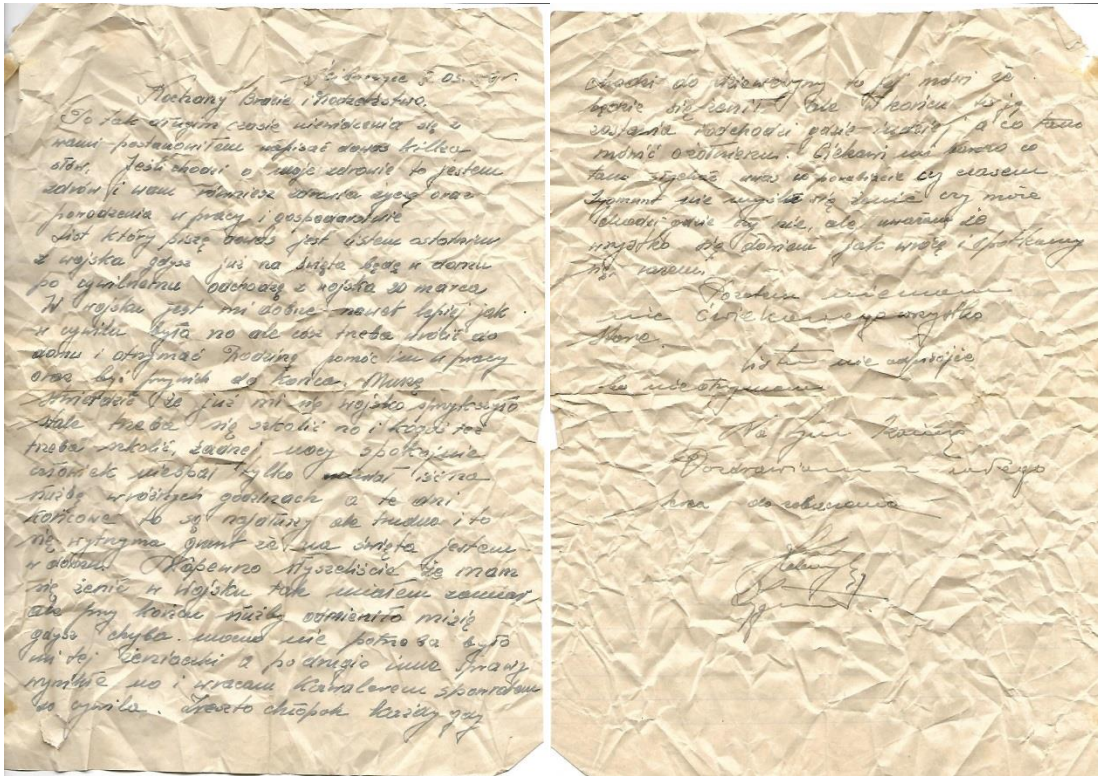 Kochany Bracie i
Po tak długim czasie niewidzenia się z
wami postanowiłem napisać dowas kilka
słów. Jeśli chodzi o moje zdrowie to jestem
zdrów i wam również zdrowia życzę oraz
powodzenia w pracy i gospodarstwie
List który piszę dowas jest listem ostatnim
z wojska gdysz już na święta będę w domu
po cywilnemu odchodzę z wojska 20 marca
W wojsku jest mi dobrze nawet lepiej jak
w cywilu było no ale cosz treba wrócić do
domu i otrzymać Rodzinę pomóc im w pracy
oraz być przynich do końca. Muszę
stwierdzić że już mi się wojsko
stale treba się szkolić no i kogoś też
treba szkolić, żadnej nocy spokojnie
człowiek niespał tylko musiał iść na
służbę w różnych godzinach a te dni
końcowe to są ale trudno i to
się wytrzyma grunt że na święta jestem
w domu. Napewno słyszeliście że mam
się żenić w wojsku tak miałem zamiar
ale przy końcu służby odmieniło misię
gdysz chyba nic potrzeba było
mi tej żeniaczki a podrugie inne sprawy
wynikłe no i wracam Kawalerem spowrotem
do cywila. Zreszto chłopak każdy gdy
chodzi do dziewczyny to jej mówi że
będzie się żenił ale w końcu to ją
zostawia i odchodzi gdzie indziej a co tam
mówić ożołnierzu. Ciekawi mi bardzo co
tam słychać uwas w czy czasem
Zygmunt nie myśli się żenić czy może
chodzi gdzie czy nie, ale uważam że
wszystko się dowiem jak wrócę i spotkamy
się razem.
Pozatem niemam
nic ciekawego wszystko
stare.
Listu nie odpisujcie
bo nieotrzymam
Na tym kończę
Pozdrawiam z całego
serca dozobaczenia